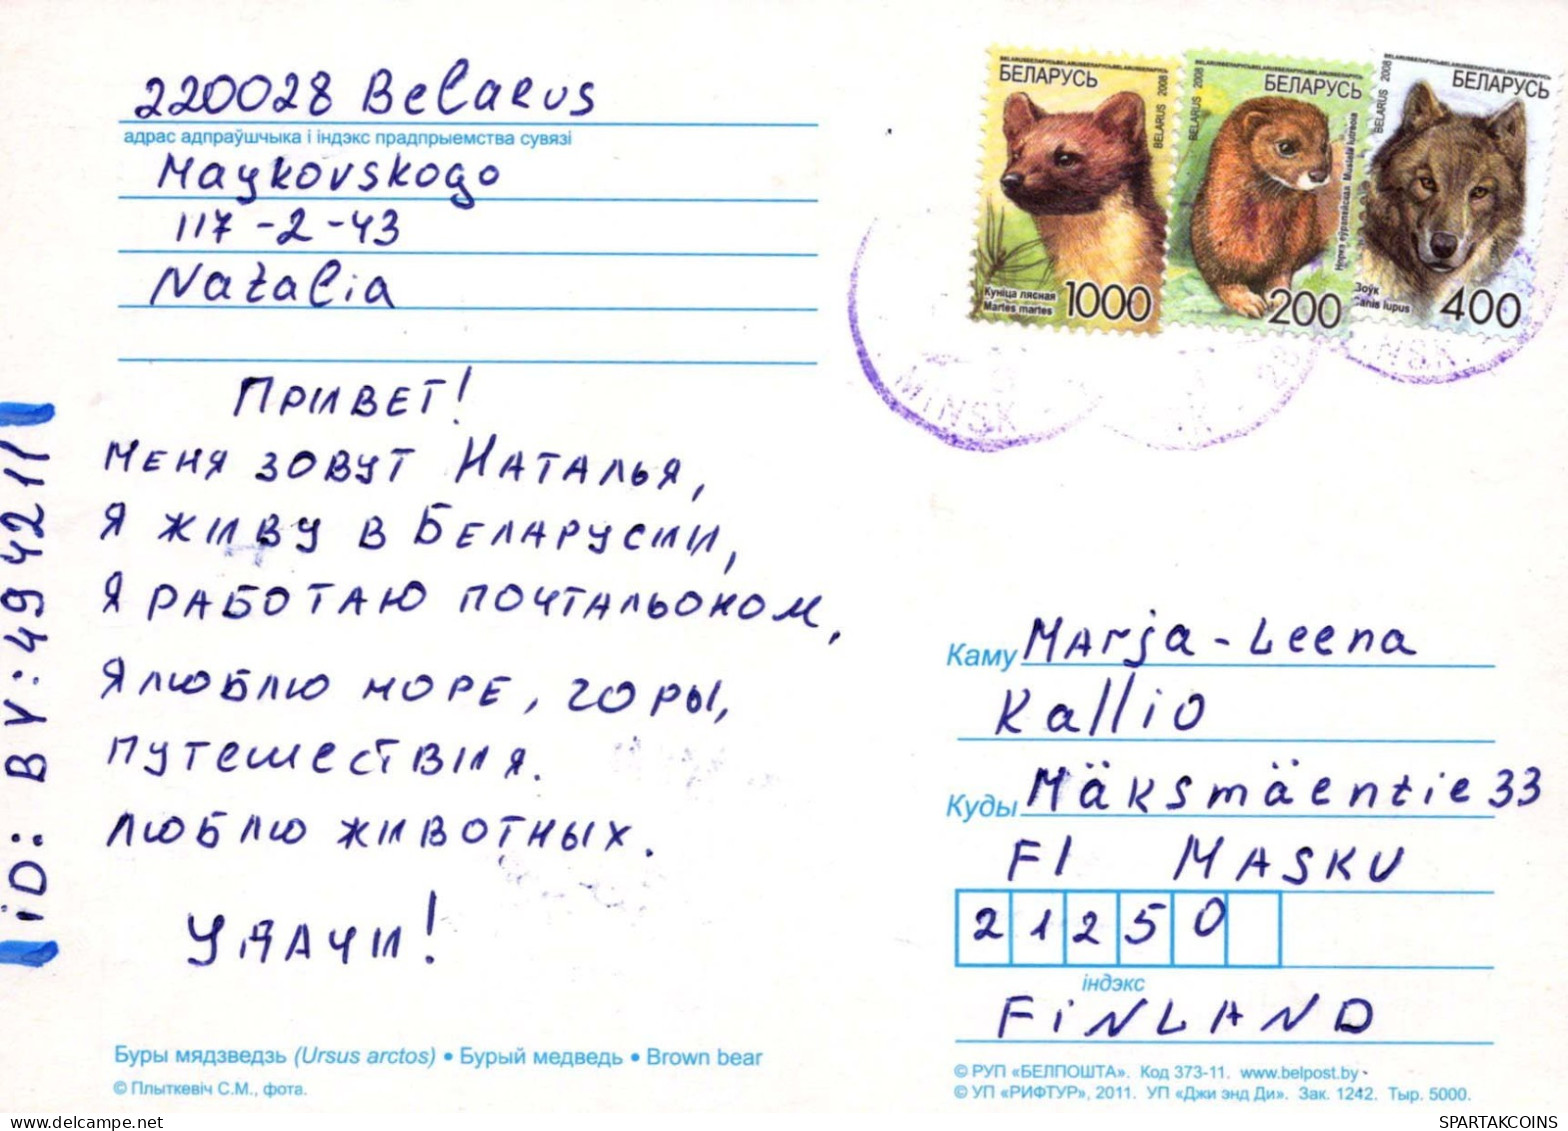 220028 Belarus
адрас адпраўшчыка і індэкс прадпрыемства сувязі
Maykovskogo
117-2-43
Natalia
Привет!
Меня зовут Наталья,
Я живу в Беларусии,
Я работаю почтальоном,
Я люблю море, горы,
путешествия.
люблю животных.
Удачи!
iD: BY:4994211
Буры мядзведзь (Ursus arctos) • Бурый медведь • Brown bear
© Плыткевіч С.М., фота.
БЕЛАРУСЬ
BELARUS 2008
Куніца лясная
Martes martes
1000
БЕЛАРУСЬ
BELARUS 2008
Норка еўрапейская Mustela lutreola
200
БЕЛАРУСЬ
BELARUS 2008
Воўк
Canis lupus
400
MINSK
Каму Marja-Leena
Kallio
Куды Mäksmäentie 33
FI MASKU
21250
індэкс
FiNLAND
© РУП «БЕЛПОШТА». Код 373-11. www.belpost.by
© УП «РИФТУР», 2011. УП «Джи энд Ди». Зак. 1242. Тыр. 5000.
SPARTAKCOINS